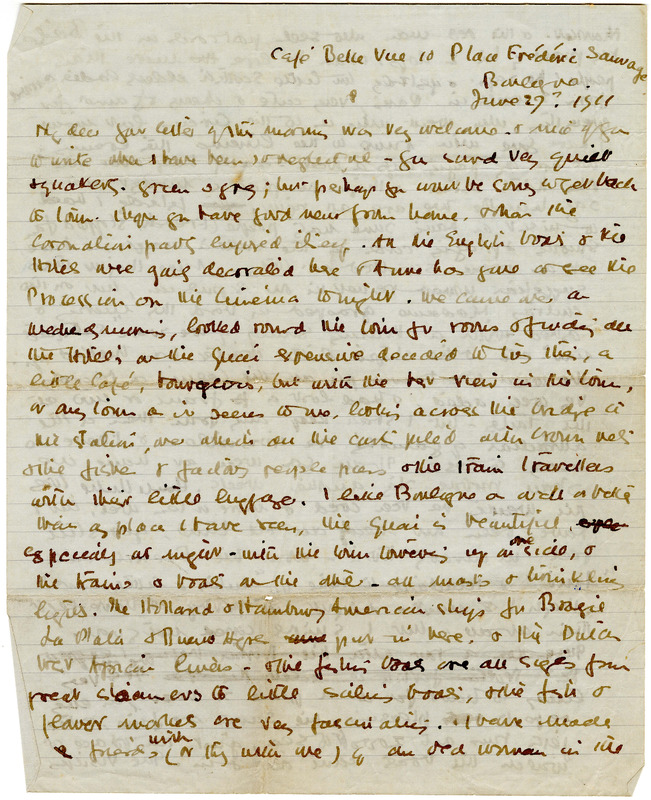 Café Belle Vue 10 Place Frédéric Sauvage
Boulogne.
June 27. 1911
My dear your letter of this morning was very welcome & nice of you
to write when I have been so neglectful - you sound very quiet
& quakery. green & grey; but perhaps you wont be sorry to get back
to town. I hope you have good news from home, & that the
Coronation party enjoyed. All the English boats & the
Hotels were gaily decorated here & Anne has gone to see the
Procession on the Cinema tonight. We came over on
Wednesday morning, looked round the town for rooms & finding all
the Hotels on the Quai expensive decided to try this, a
little Café, bourgeois, but with the best view in the town,
or any town as it seems to me, looking across the bridge to
the station, over which all the carts piled with brown nets
& the fisher & factory people pass & the train travellers
with their little luggage. I like Boulogne as well or better
than any place I have seen, the Quai is beautiful,
especially at night - with the town towering up on one side, &
the trains & boats on the other - all masts & twinkling
lights. The Holland & Hamburg American ships for
La Plata & Buenos Ayres put in here, & the Dutch
West African liners - & the fishing boats are all sizes from
great steamers to little sailing boats, & the fish &
flower markets are very fascinating. I have made
friends with (or they with me) an old woman in the